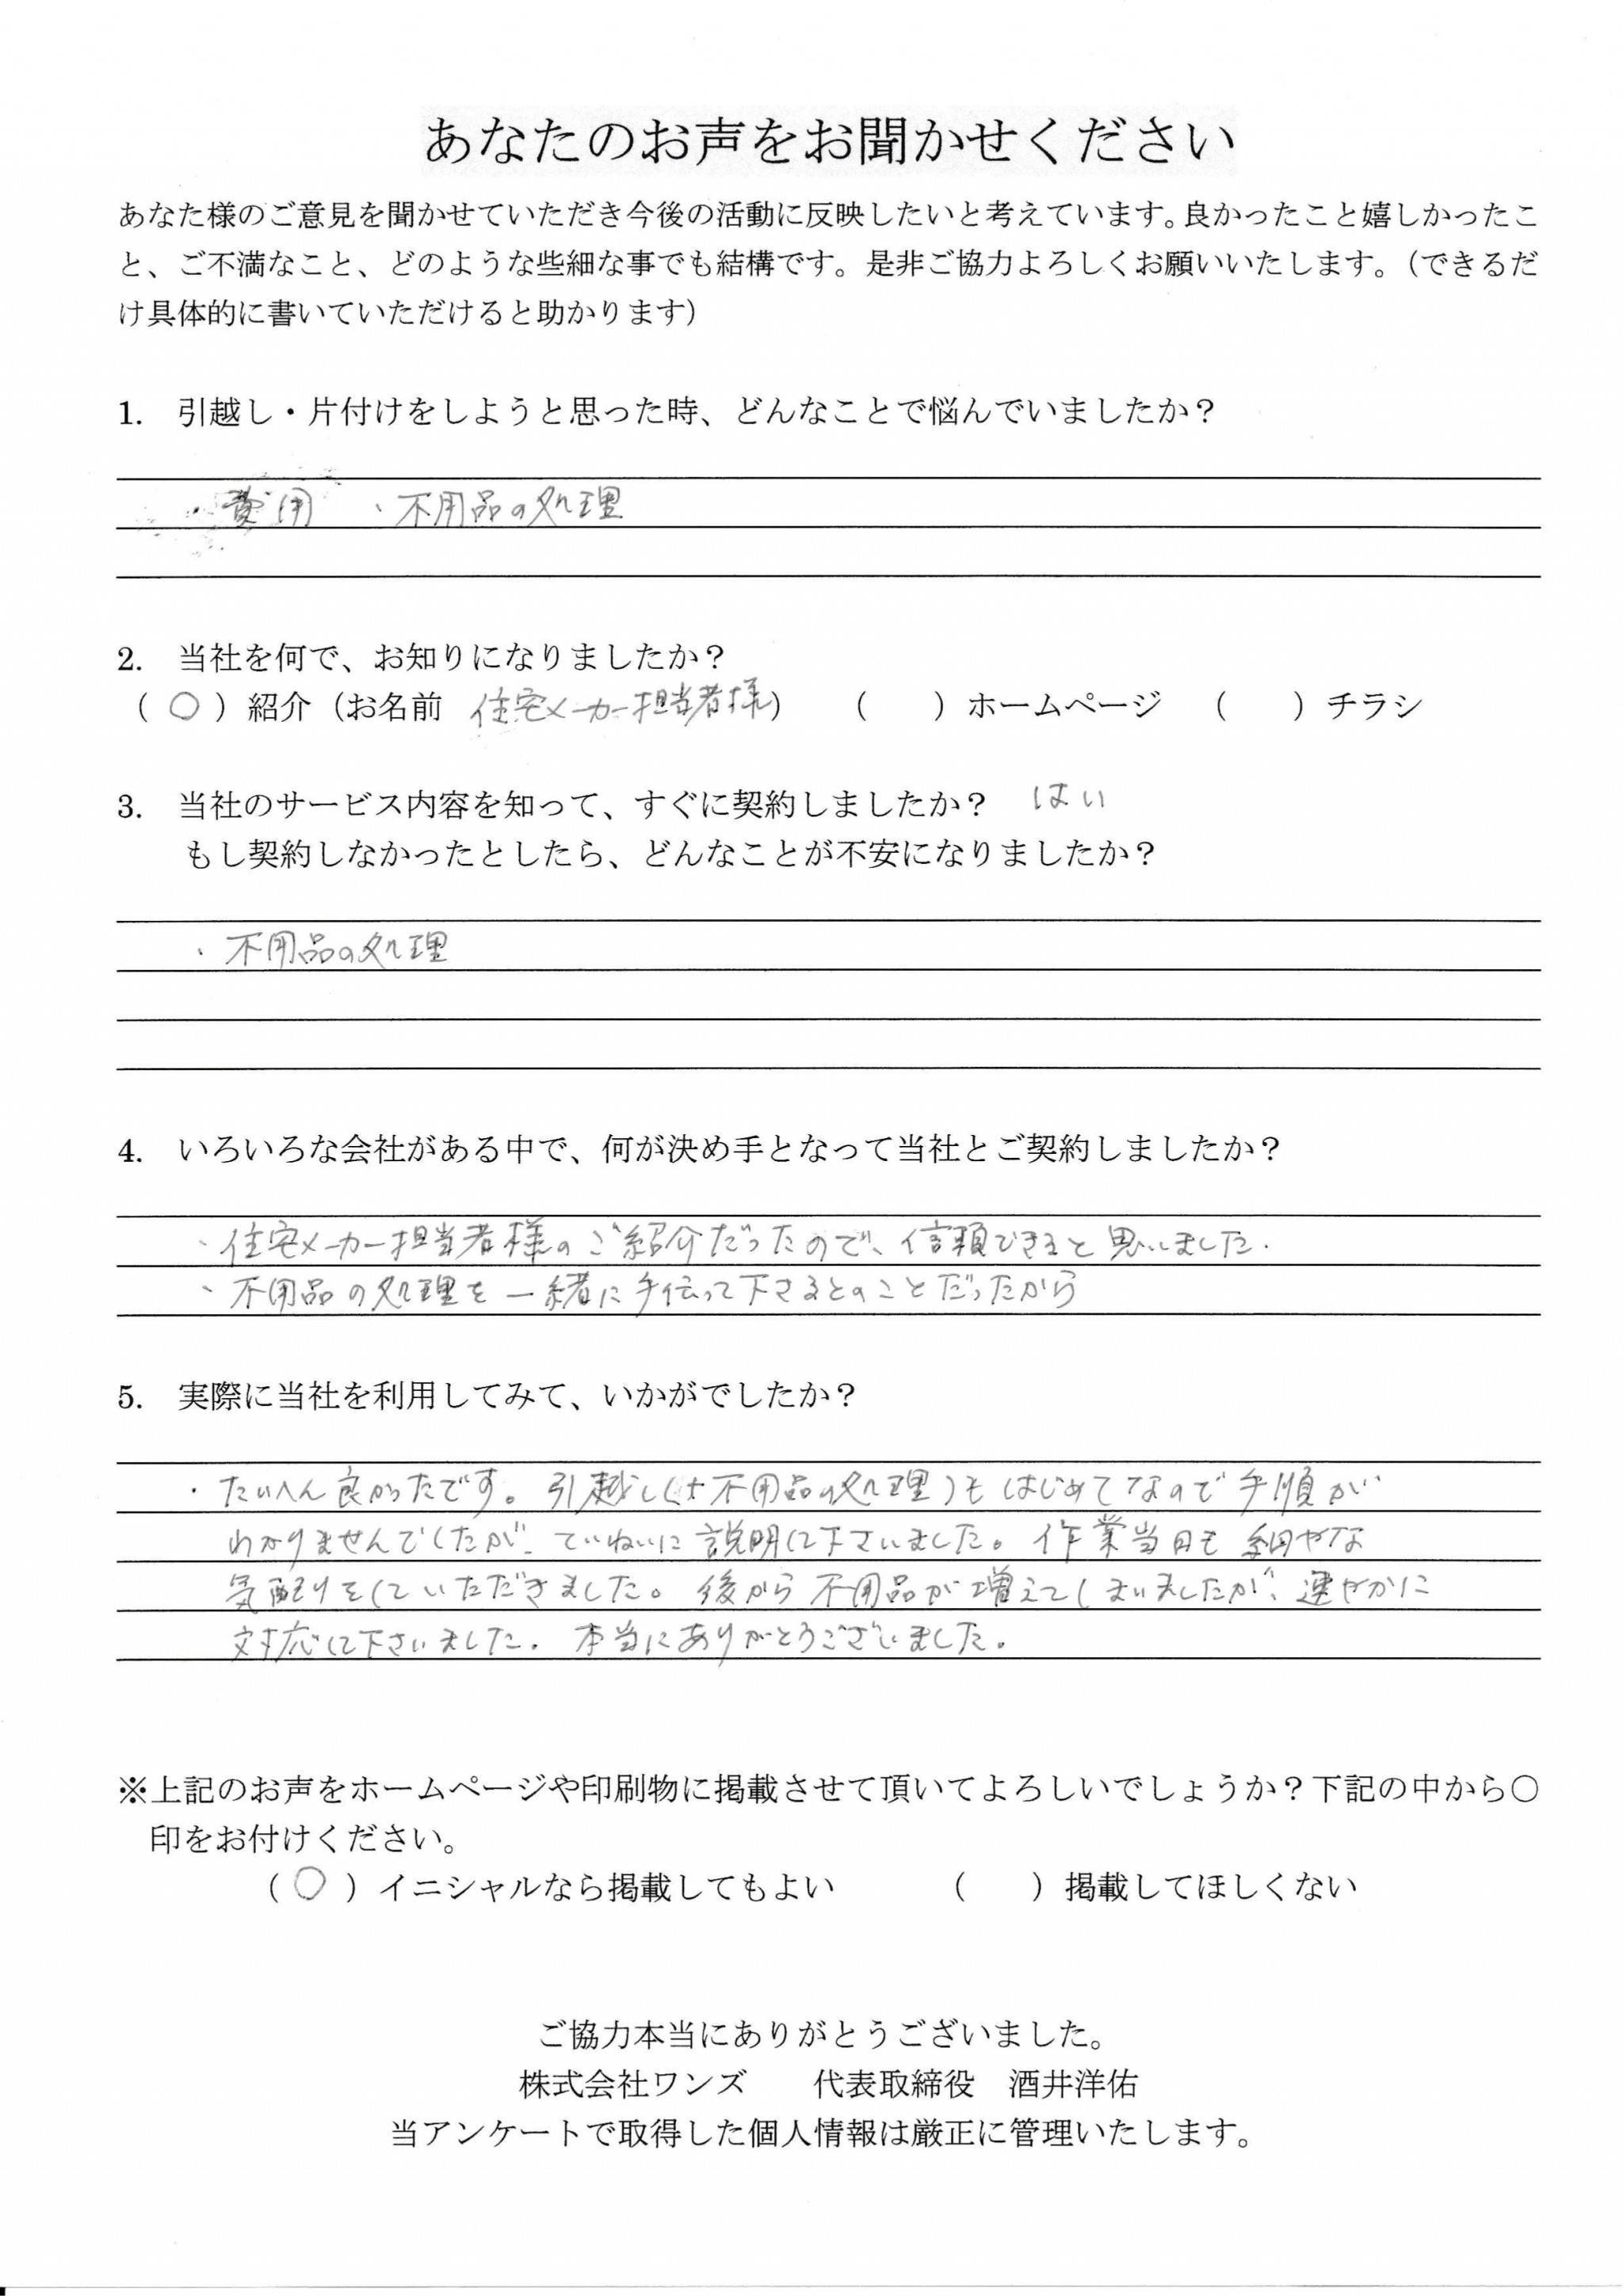 あなたのお声をお聞かせください
あなた様のご意見を聞かせていただき今後の活動に反映したいと考えています。良かったこと嬉しかったこ
と、ご不満なこと、どのような些細な事でも結構です。是非ご協力よろしくお願いいたします。（できるだ
け具体的に書いていただけると助かります）
1. 引越し・片付けをしようと思った時、どんなことで悩んでいましたか？
・費用 ・不用品の処理
2. 当社を何で、お知りになりましたか？
（ ○ ）紹介（お名前 住宅メーカー担当者様） （ ）ホームページ （ ）チラシ
3. 当社のサービス内容を知って、すぐに契約しましたか？ はい
もし契約しなかったとしたら、どんなことが不安になりましたか？
・不用品の処理
4. いろいろな会社がある中で、何が決め手となって当社とご契約しましたか？
・住宅メーカー担当者様のご紹介だったので、信頼できると思いました.
・不用品の処理を一緒に手伝って下さるとのことだったから
5. 実際に当社を利用してみて、いかがでしたか？
・たいへん良かったです。引越し(+不用品の処理)もはじめてなので手順が
わかりませんでしたが、ていねいに説明して下さいました。作業当日も細やな
気配りをしていただきました。後から不用品が増えてしまいましたが、速やかに
対応して下さいました. 本当にありがとうございました。
※上記のお声をホームページや印刷物に掲載させて頂いてよろしいでしょうか？下記の中から○
印をお付けください。
（ ○ ）イニシャルなら掲載してもよい （ ）掲載してほしくない
ご協力本当にありがとうございました。
株式会社ワンズ 代表取締役 酒井洋佑
当アンケートで取得した個人情報は厳正に管理いたします。